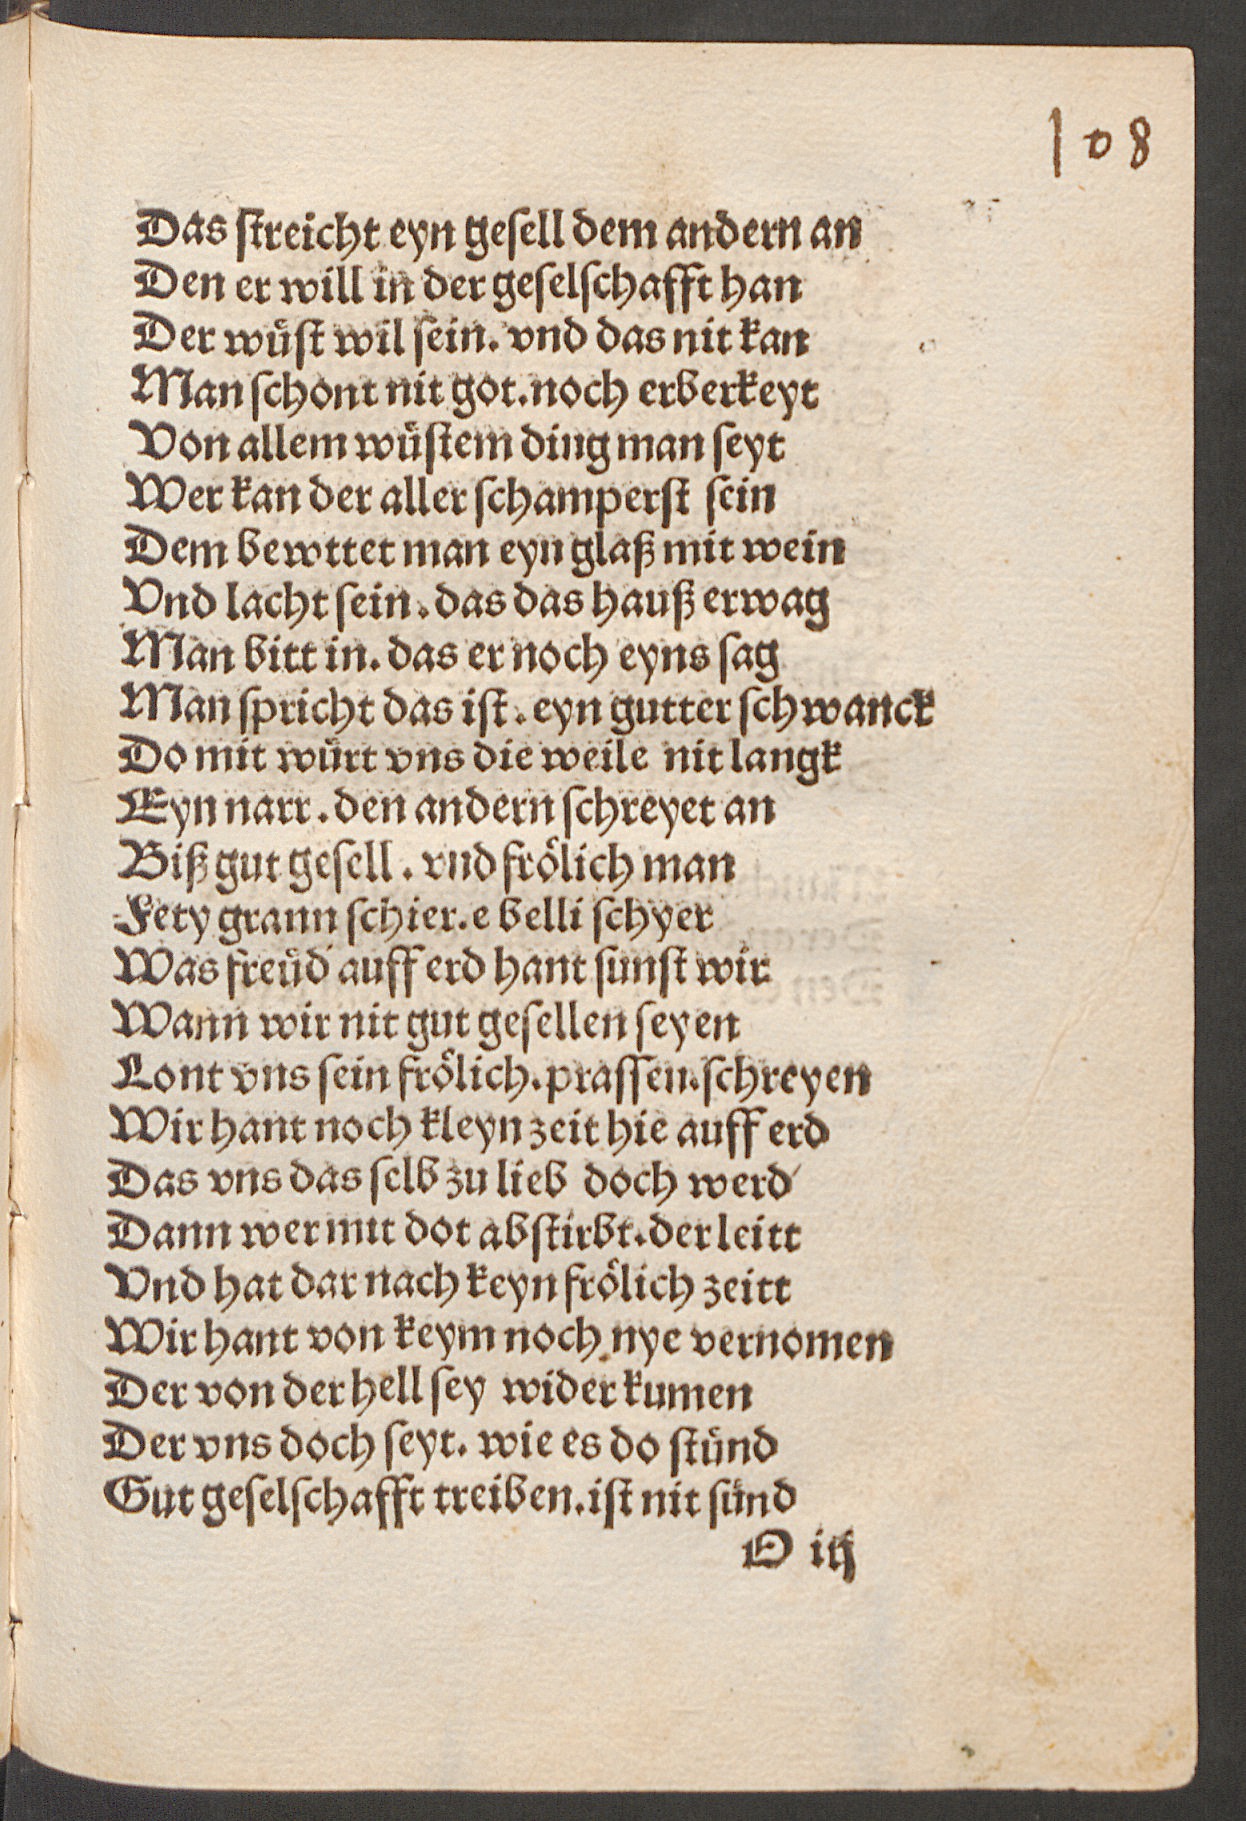 108
Das ſtreicht eyn geſell dem andern an
Den er will in der geſelſchafft han
Der wuͤſt wil ſein. vnd das nit kan
Man ſchont nit got. noch erberkeyt
Von allem wuͤſtem ding man ſeyt
Wer kan der aller ſchamperſt ſein
Dem bewttet man eyn glaß mit wein
Vnd lacht ſein. das das hauß erwag
Man bitt in. das er noch eyns ſag
Man ſpricht das iſt. eyn gutter ſchwanck
Do mit wuͤrt vns die weile nit langk
Eyn narr. den andern ſchreyet an
Biß gut geſell. vnd froͤlich man
Fety grann ſchier. e belli ſchyer
Was freuͤd auff erd hant ſunſt wir
Wann wir nit gut geſellen ſeyen
Lont vns ſein froͤlich. praſſen. ſchreyen
Wir hant noch kleyn zeit hie auff erd
Das vns das ſelb zu lieb doch werd
Dann wer mit dot abſtirbt. der leitt
Vnd hat dar nach keyn froͤlich zeitt
Wir hant von keym noch nye vernomen
Der von der hell ſey wider kumen
Der vns doch ſeyt. wie es do ſtuͤnd
Gut geſelſchafft treiben. iſt nit ſuͤnd
O iij